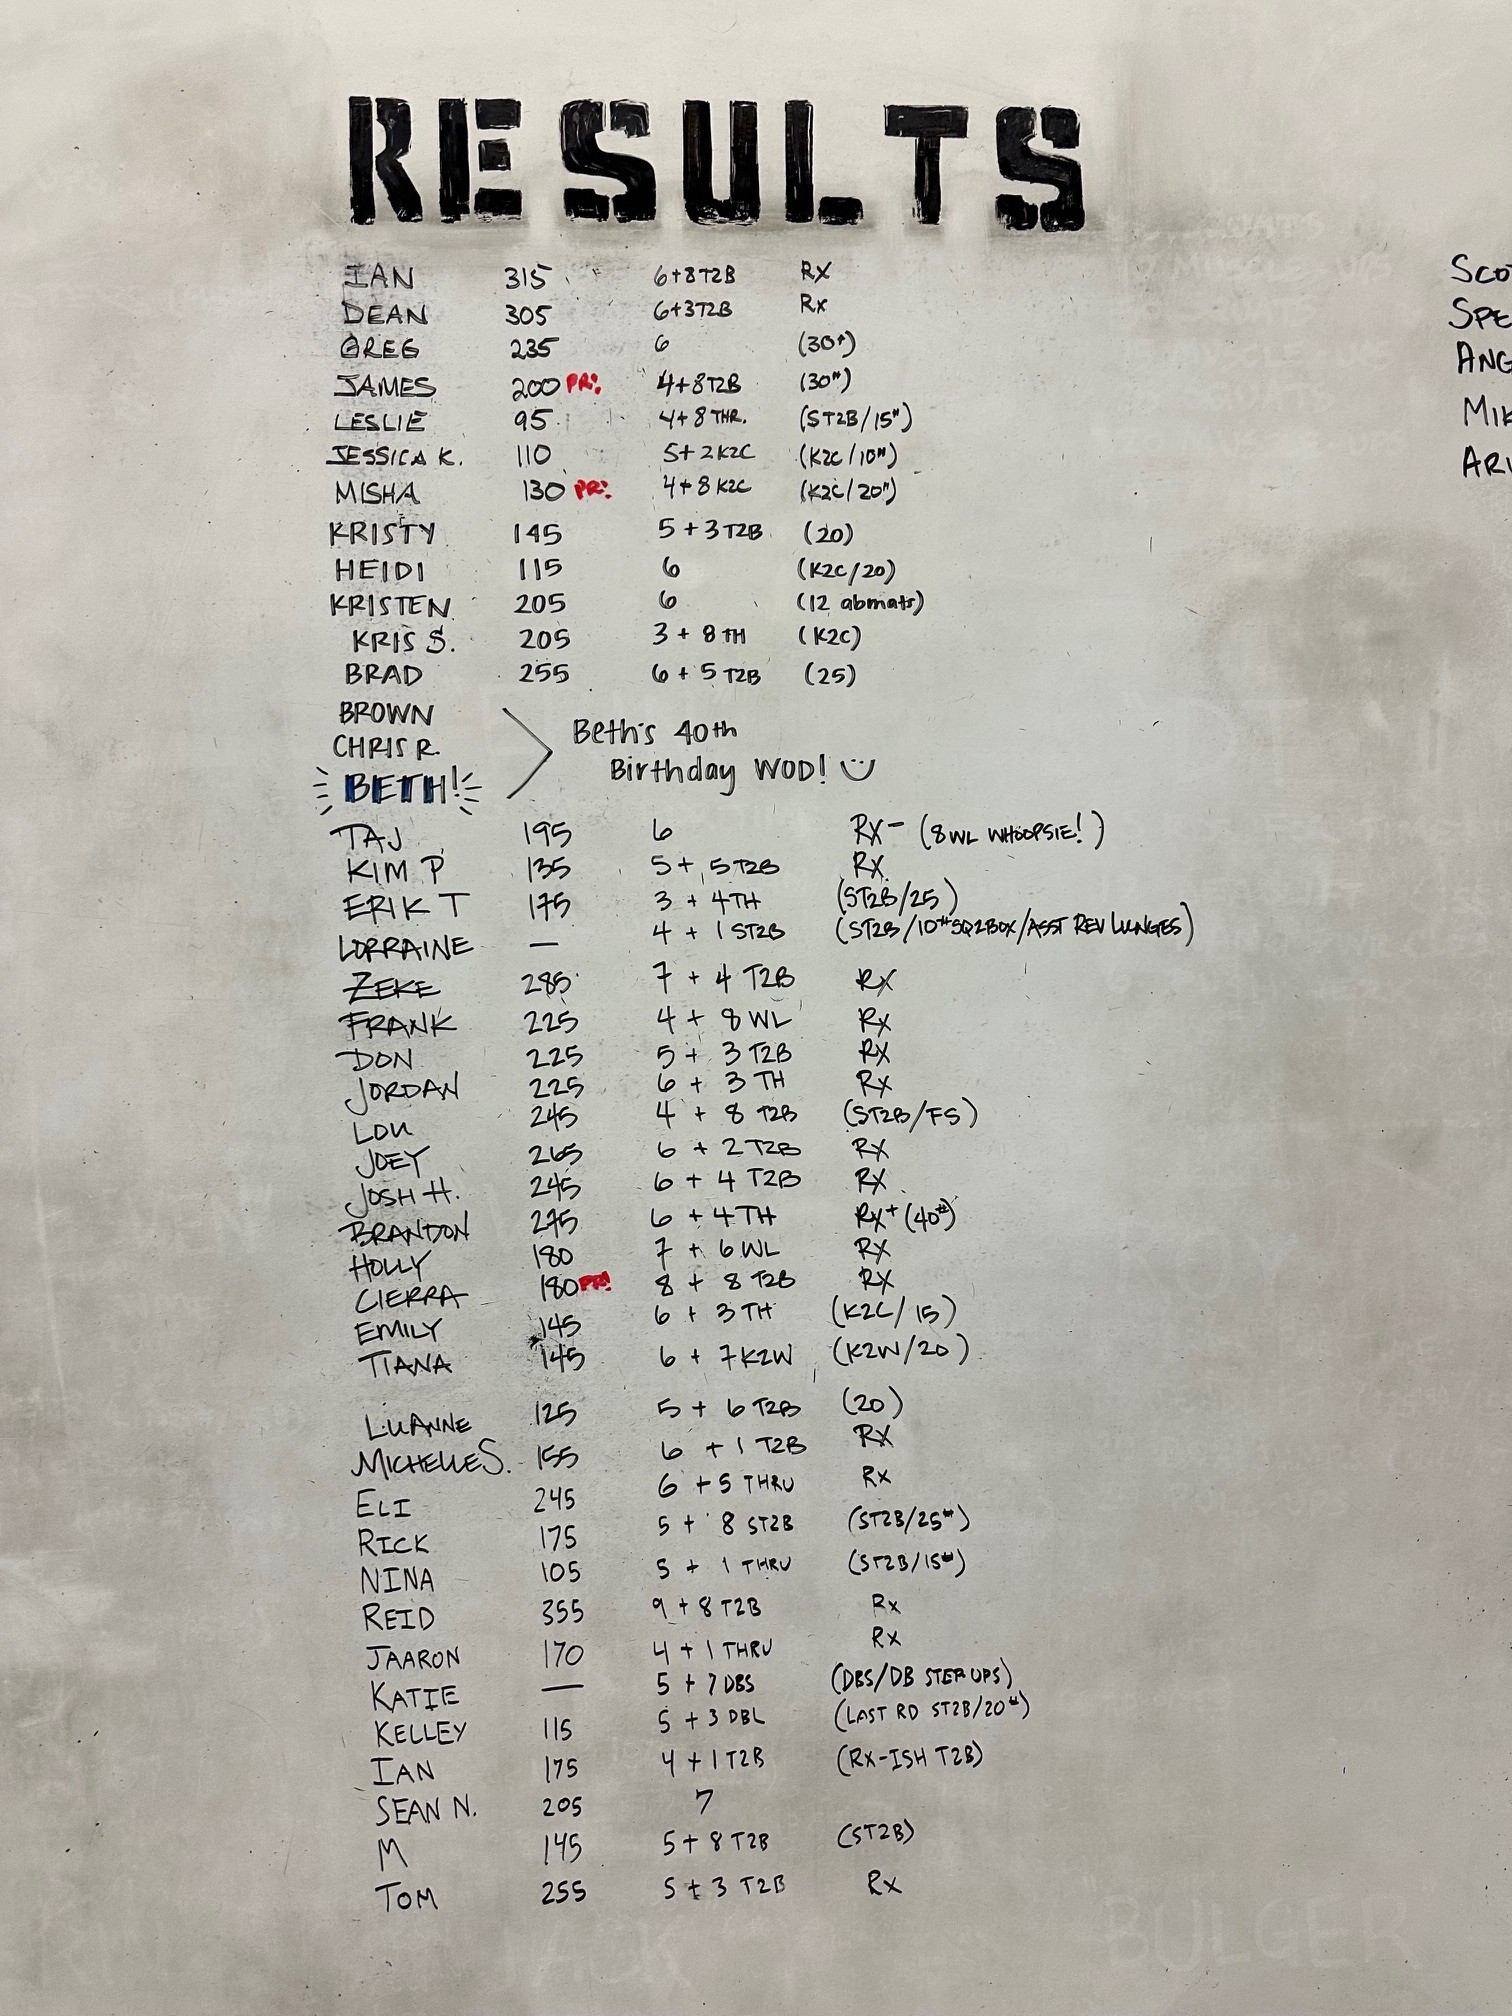 RESULTS
IAN 315 6+8T2B RX
DEAN 305 6+3T2B RX
GREG 235 6 (30#)
JAMES 200 PR! 4+8T2B (30#)
LESLIE 95 4+8 THR. (ST2B/15#)
JESSICA K. 110 5+2K2C (K2C/10#)
MISHA 130 PR! 4+8 K2C (K2C/20#)
KRISTY 145 5+3T2B (20)
HEIDI 115 6 (K2C/20)
KRISTEN 205 6 (12 abmats)
KRIS S. 205 3+8 TH (K2C)
BRAD 255 6+5 T2B (25)
BROWN
CHRIS R.
BETH!
Beth's 40th
Birthday WOD!
TAJ 195 6 RX- (8WL WHOOPSIE!)
KIM P 135 5+5T2B RX
ERIK T 175 3+4TH (ST2B/25)
LORRAINE — 4+1ST2B (ST2B/10#SQ2BOX/ASST REV LUNGES)
ZEKE 285 7+4 T2B RX
FRANK 225 4+8WL RX
DON 225 5+3 T2B RX
JORDAN 225 6+3 TH RX
LOU 245 4+8 T2B (ST2B/FS)
JOEY 265 6+2 T2B RX
JOSH H. 245 6+4 T2B RX
BRANDON 275 6+4TH RX+ (40#)
HOLLY 180 7+6WL RX
CIERRA 180 PR! 8+8 T2B RX
EMILY 145 6+3TH (K2C/15)
TIANA 145 6+7K2W (K2W/20)
LUANNE 125 5+6T2B (20)
MICHELLE S. 155 6+1 T2B RX
ELI 245 6+5 THRU RX
RICK 175 5+8 ST2B (ST2B/25#)
NINA 105 5+1 THRU (ST2B/15#)
REID 355 9+8T2B RX
JAARON 170 4+1THRU RX
KATIE — 5+7DBS (DBS/DB STEP UPS)
KELLEY 115 5+3 DBL (LAST RD ST2B/20#)
IAN 175 4+1T2B (RX-ISH T2B)
SEAN N. 205 7
M 145 5+8 T2B (ST2B)
TOM 255 5+3 T2B RX
SCO
SPE
ANG
MIK
AR
BULGER